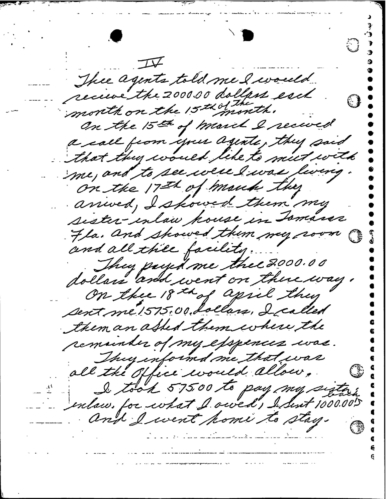 IV
Thee agents told me I would
recieve the 2000.00 dollars each
month on the 15th of the month.
On the 15th of March I recived
a call from your agents, they said
that they would like to meet with
me, and to see were I was living.
On the 17th of March they
arrived, I showed them my
sister-inlaw house in Tamarac
Fla. and showed them my room
and all thee facility.
They payed me thee 2000.00
dollars and went on there way.
On thee 18th of April they
sent me 1575.00 dollars, I called
them an asked them where the
remainder of my expences was.
They informed me that was
all the Office would allow.
I took 575.00 to pay my sister
inlaw, for what I owed, I sent 1000.00 back
and I went home to stay.